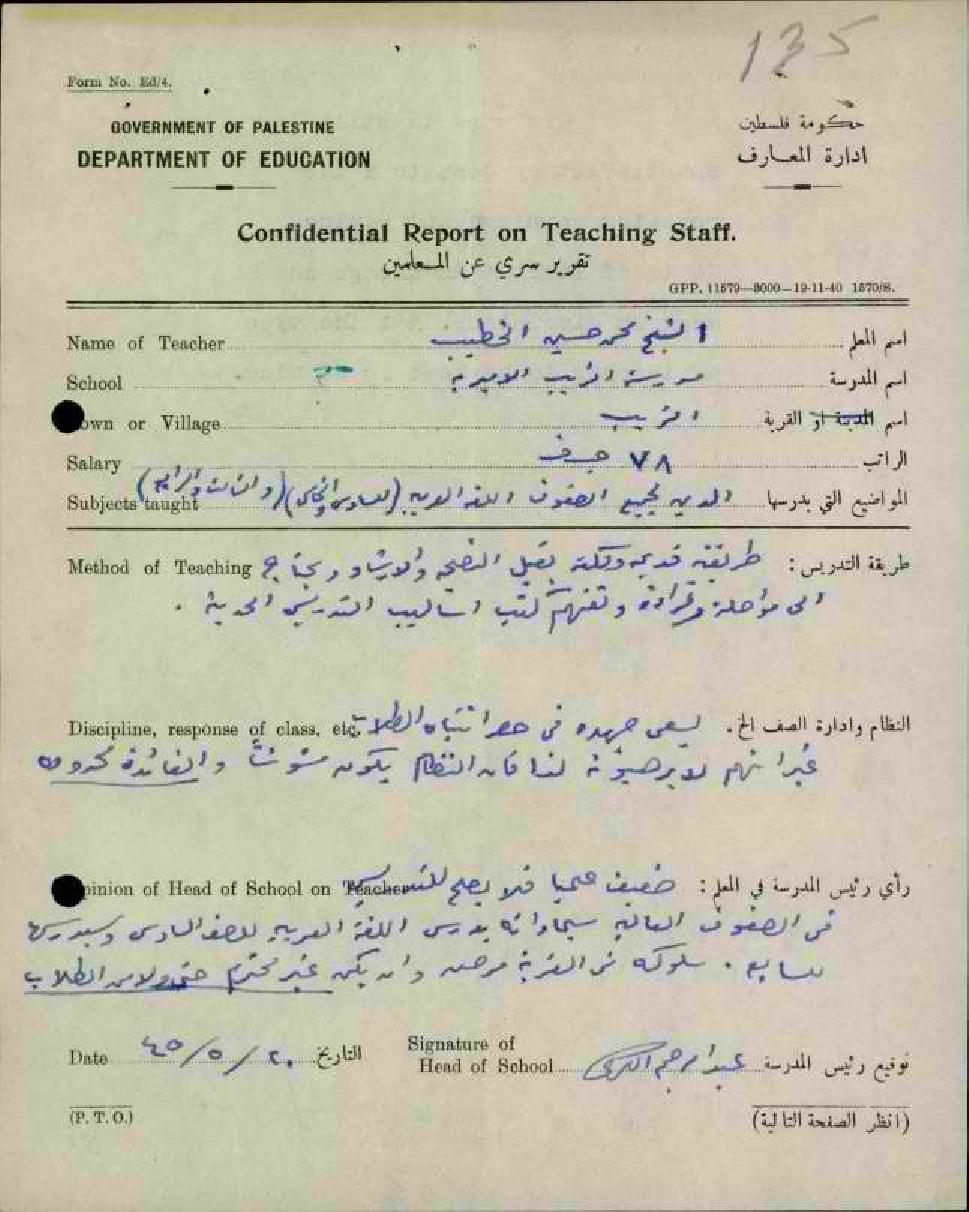 135
Form No. Ed/4.
GOVERNMENT OF PALESTINE
حكومة فلسطين
DEPARTMENT OF EDUCATION
ادارة المعارف
Confidential Report on Teaching Staff.
تقرير سري عن المعلمين
GPP. 11579—3000—19-11-40 1570/S.
Name of Teacher الشيخ محمد حسين الخطيب اسم المعلم
School مدرسة الزيب الاميرية اسم المدرسة
Town or Village الزيب اسم المدينة او القرية
Salary ٧٨ الراتب
Subjects taught الدين لجميع الصفوف اللغة العربية (للسادس والخامس) (والثالث والرابع) المواضيع التي يدرسها
Method of Teaching طريقته قديمة ولكنه يقبل النصح والارشاد ويحتاج طريقة التدريس :
الى مواصلة قراءة وتفهم كتب اساليب التدريس الحديثة .
Discipline, response of class, etc. يسعى جهده في حصر انتباه الطلاب النظام وادارة الصف الخ .
غير انهم لا يرهبونه لذا فان النظام يكون مشوشاً والفائدة محدودة
Opinion of Head of School on Teacher ضعيف علميا فلا يصلح للتدريس رأي رئيس المدرسة في المعلم :
في الصفوف العالية سيما وانه يدرس اللغة العربية للصف السادس وسيدرسها
للسابع . سلوكه في القرية مرضي وان يكن غير محترم حتى ولا من الطلاب
Date ٢٠/٥/٤٥ التاريخ
Signature of
Head of School عبد الرحيم الكرمي توقيع رئيس المدرسة
(P. T. O.)
(انظر الصفحة التالية)